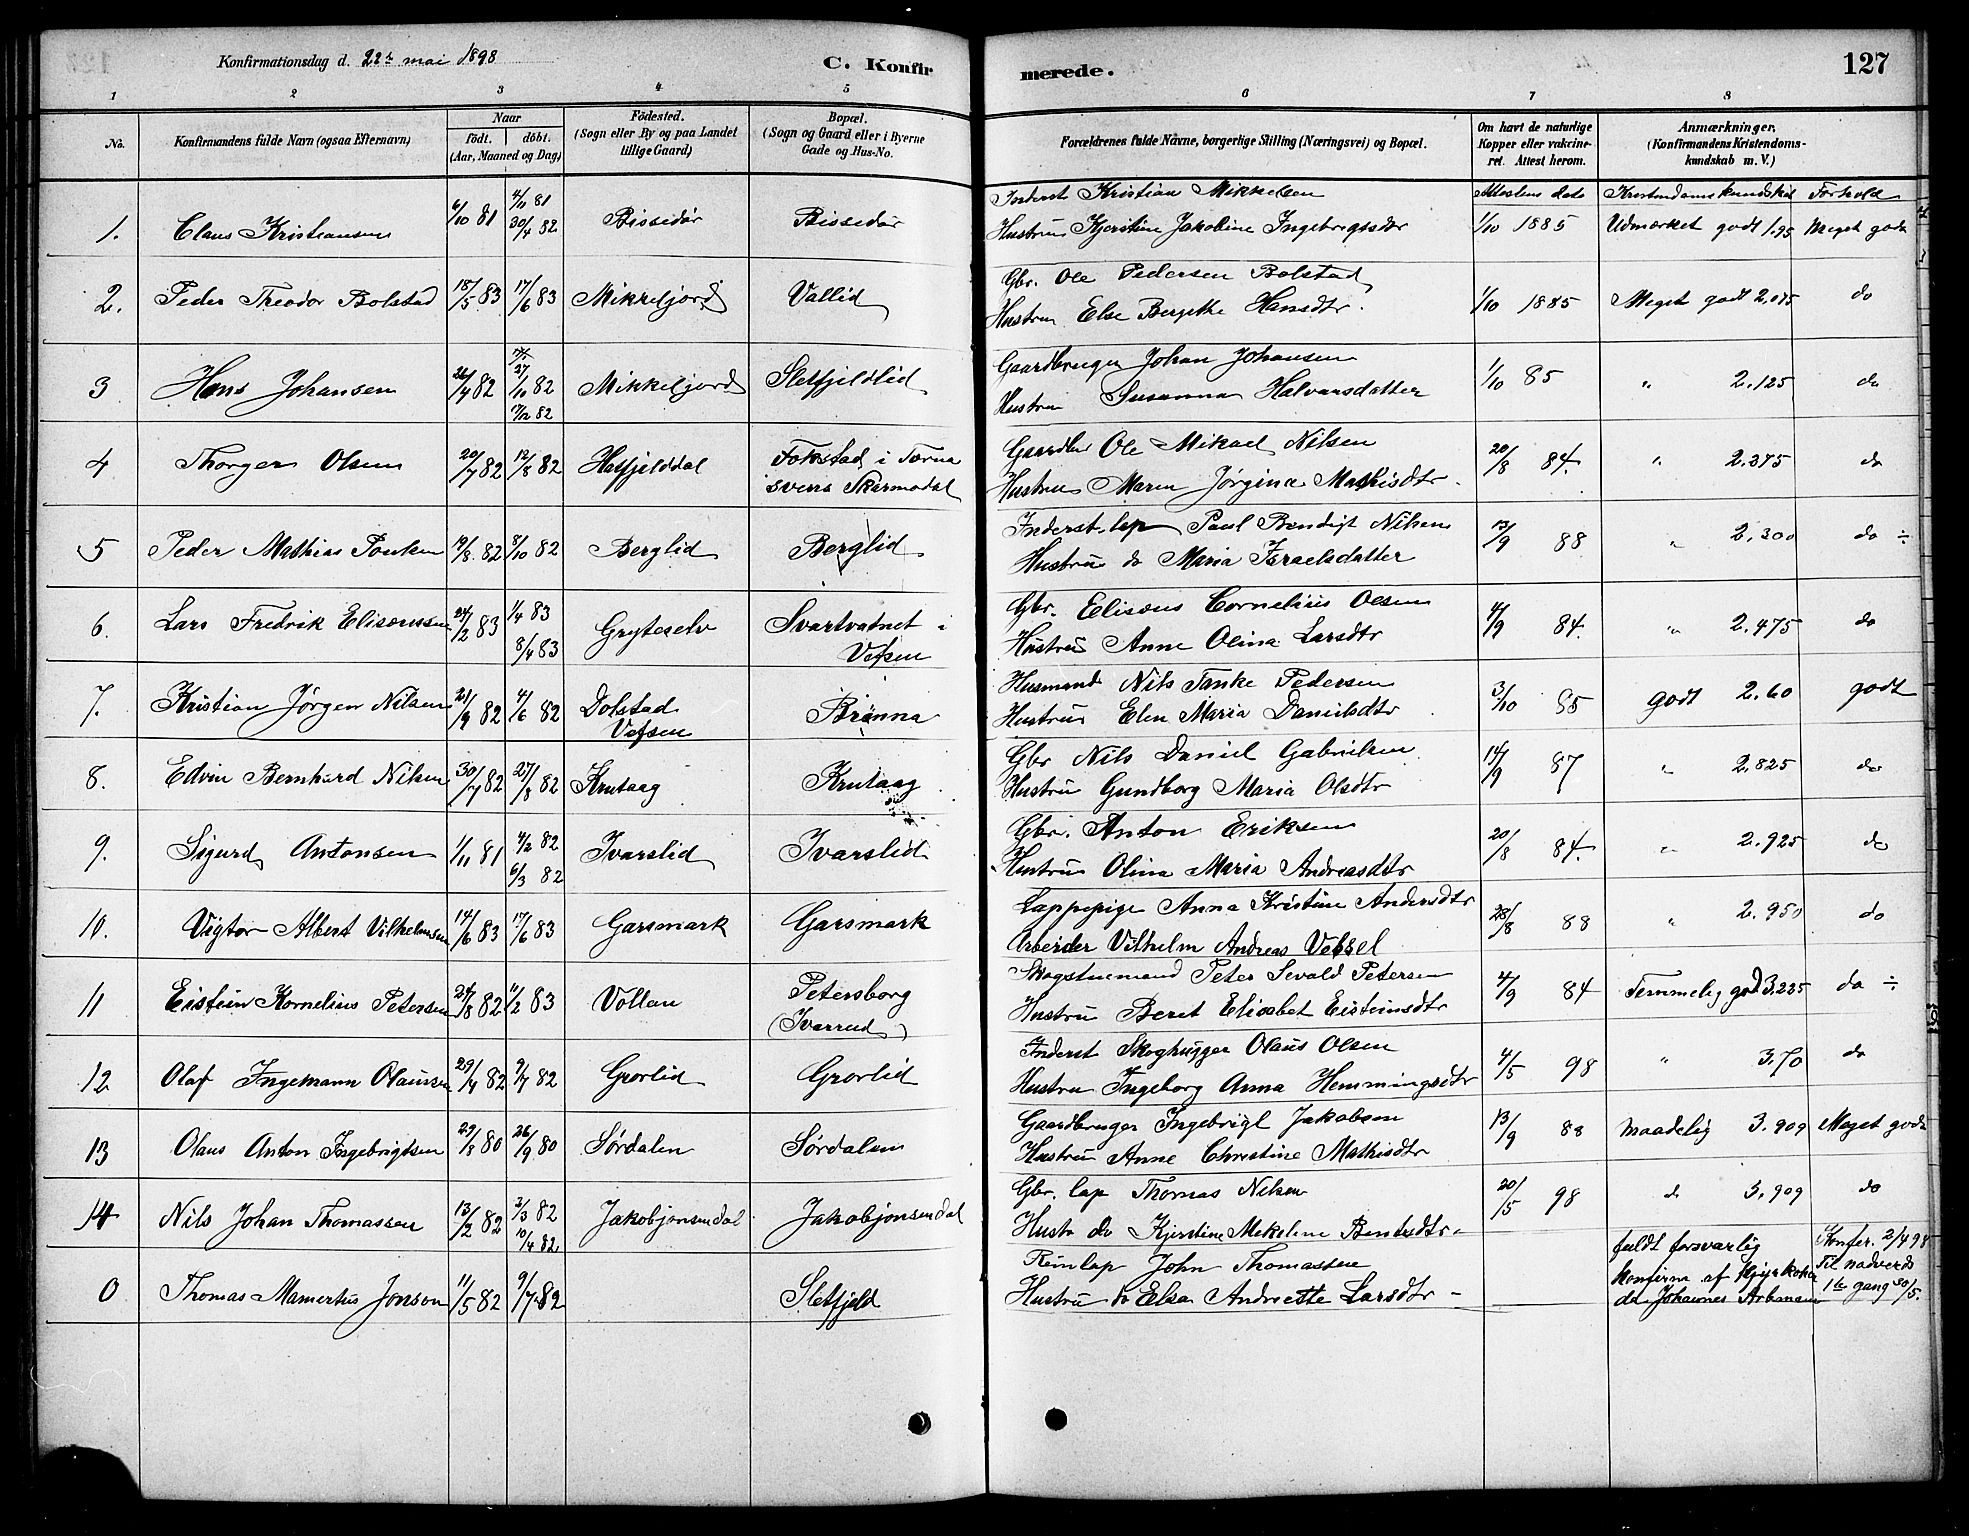 Konfirmationsdag d. 22de mai 1898
C. Konfir
merede.
127
1 2 3 4 5 6 7 8
No. Konfirmandens fulde Navn (ogsaa Efternavn) Naar födt. döbt. (Aar, Maaned og Dag) Födested. (Sogn eller By og paa Landet tillige Gaard) Bopæl. (Sogn og Gaard eller i Byerne Gade og Hus-No. Forældrenes fulde Navne, borgerlige Stilling (Næringsvei) og Bopæl. Om havt de naturlige Kopper eller vakcineret. Attest herom. Anmærkninger. (Konfirmandens Kristendomskundskab m. V.)
Attestens dato Kristendomskundskab Forhold
1. Claus Kristiansen 6/10 81 4/11 81 30/4 82 Bissedør Bissedør Inderst Kristian Mikkelsen
Hustru Kjerstine Jakobine Ingebrigtsdtr 1/10 1885 Udmærket godt 1.95 Meget godt
2. Peder Theodor Bolstad 18/5 83 17/6 83 Mikkeljord Vallid Gbr. Ole Pedersen Bolstad
Hustru Else Bergithe Hansdtr. 1/10 1885 Meget godt 2.075 do
3 Hans Johansen 26/9 82 27/10 82 17/12 82 Mikkeljord Sletfjeldlid Gaardbruger Johan Johansen
Hustru Susanna Halvarsdatter 1/10 85 " 2.125 do
4 Thorger Olsen 20/7 82 12/8 82 Hatfjelddal Fokstad i Tærna Sverr. Skarmodal Gaardbr Ole Mikael Nilsen
Hustru Maren Jørgina Mathisdtr. 20/8 84. " 2.375 do
5 Peder Mathias Poulsen 19/8. 82 8/10 82 Berglid Berglid Inderst. lap Paul Bendigt Nilsen
Hustru do Maria Israelsdatter 13/9 88 " 2.300 do ÷
6. Lars Fredrik Elisæussen 24/2 83 1/4 83 8/4 83 Gryteselv Svartvatnet i Vefsen Gbr. Elisæus Cornelius Olsen
Hustru Anne Olina Larsdtr 4/9 84. " 2.475 do
7. Kristian Jørgen Nilsen 21/9 82 4/6 82 Dolstad Vefsen Brønna Husmand Nils Tanke Pedersen
Hustru Elen Maria Danielsdtr 3/10 85 godt 2.60 godt
8. Edvin Bernhard Nilsen 30/7 82 27/8 82 Krutaag Krutaag Gbr Nils Daniel Gabrielsen
Hustru Gundborg Maria Olsdtr 14/9 87 " 2.825 do
9. Sigurd Antonsen 1/11 81 4/2 82 6/3 82 Ivarslid Ivarslid Gbr. Anton Eriksen
Hustru Olina Maria Andreasdtr 20/8 84. " 2.925 do
10. Vigtor Albert Vilhelmsen 14/6 83 17/6 83 Garsmark Garsmark Lappepige Anna Kristine Andersdtr
Arbeider Vilhelm Andreas Vessel 28/8 88 " 2.950 do
11 Eistein Kornelius Petersen 24/8 82 11/2 83 Vollan Petersborg (Ivarrud) Skogstuemand Peter Sevald Petersen
Hustru Beret Elisabet Eisteinsdtr 4/9 84 Temmelig god 3.225 do ÷
12. Olaf Ingemann Olaussen 29/4 82 9/7 82 Grorlid Grorlid Inderst Skoghugger Olaus Olsen
Hustru Ingeborg Anna Hemmingsdtr 4/5 98 " 3.70 do
13 Olaus Anton Ingebrigtsen 29/8 80 26/9 80 Sørdalen Sørdalen Gaardbruger Ingebrigt Jakobsen
Hustru Anne Christine Mathisdtr 13/9 88 maadelig 3.909 Meget godt
14 Nils Johan Thomassen 13/2 82 3/3 82 10/4 82 Jakobjonsendal Jakobjonsendal Gbr. lap Thomas Nilsen
Hustr do Kjerstine Mekeline Bentsdtr. 20/5 98 d 3.909 do
0 Thomas Mamertus Jonson 11/5 82 9/7 82 Sletfjeld Reinlap John Thomassen
Hustru do Elsa Andriette Larsdtr fuldt forsvarlig
konfirma af
da Johannes
Konfir. 2/4 98
Til nadverds
1ste gang 30/5.